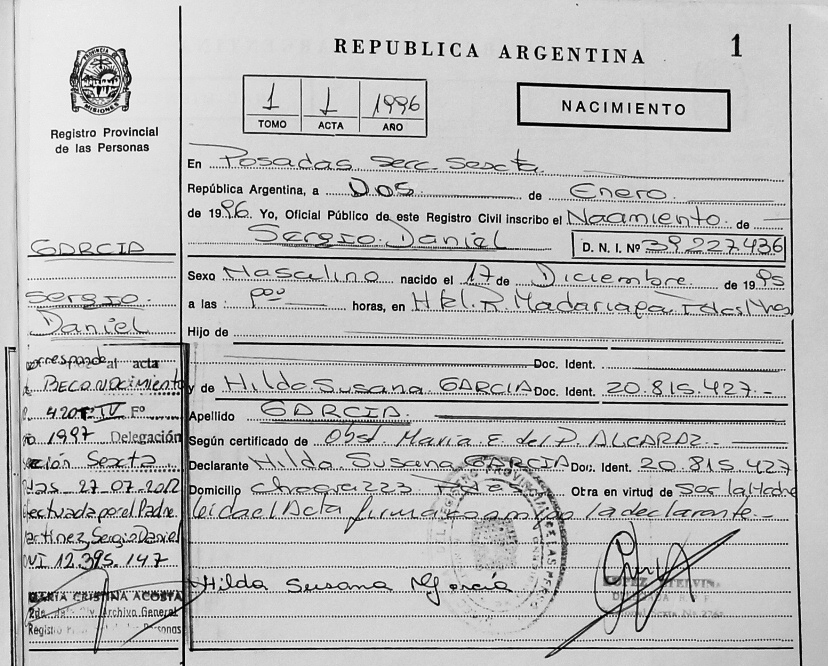 REPUBLICA ARGENTINA
1
PROVINCIA DE MISIONES
Registro Provincial
de las Personas
1 1 1996
TOMO ACTA AÑO
NACIMIENTO
En Posadas Secc. Sexta
República Argentina, a Dos de Enero
de 1996. Yo, Oficial Público de este Registro Civil inscribo el Nacimiento de
Sergio Daniel D. N. I. Nº 39.227.436
Sexo Masculino nacido el 17 de Diciembre de 1995
a las horas, en R. Madariaga
Hijo de
Doc. Ident.
y de Hilda Susana GARCIA Doc. Ident. 20.815.427 -
Apellido GARCIA
Según certificado de Obst. Maria E. del P. ALCARAZ -
Declarante Hilda Susana GARCIA Doc. Ident. 20.815.427
Domicilio Chacra 223 Otra en virtud de Ser la Madre
leida el Acta firma la declarante -
Hilda Susana Garcia
GARCIA
Sergio
Daniel
corresponde al acta
RECONOCIMIENTO
420 T IV Fº
1997 Delegación
Sexta
27-07-2012
efectuada por el Padre
Martinez, Sergio Daniel
DNI 12.395.147
MARIA CRISTINA ACOSTA
Archivo General
Registro Personas